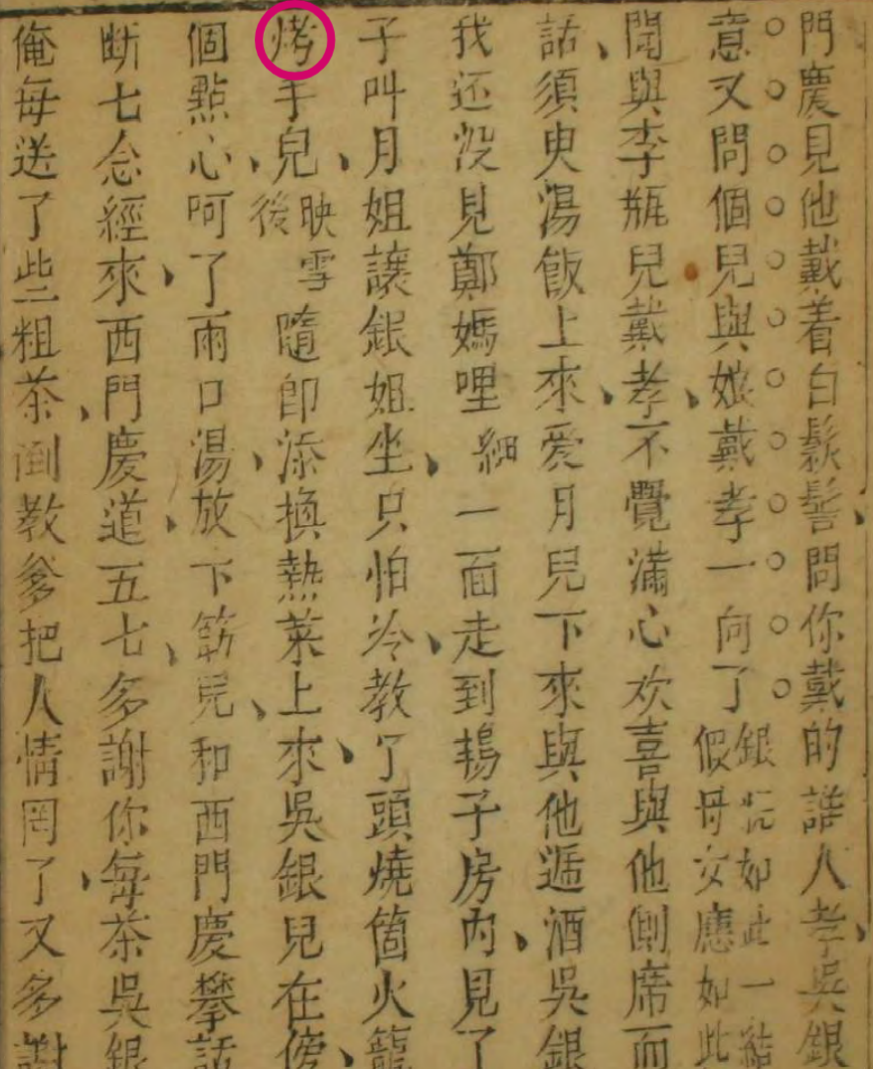 門慶見他戴着白鬏髻問你戴的誰人孝吳銀
意又問個兒與娘戴孝一向了銀兒如此一結假母女應如此
聞與李瓶兒戴孝不覺滿心欢喜與他側席而
話須臾湯飯上來爱月兒下來與他遞酒吳銀
我还没見鄭媽哩細一面走到鴇子房内見了
子叫月姐讓銀姐坐只怕冷教了頭燒箇火籠
烤手兒映雪後隨即添換熱菜上來吳銀兒在傍
個點心呵了兩口湯放下筯兒和西門慶攀話
断七念經來西門慶道五七多謝你每茶吳銀
俺每送了些粗茶倒教爹把人情囘了又多謝